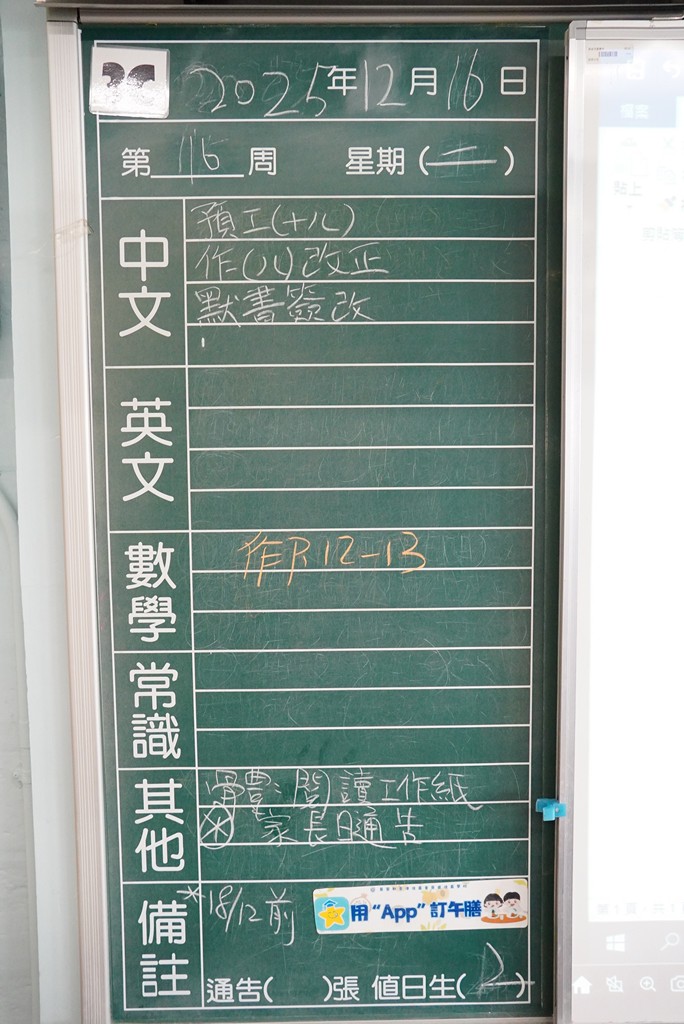 2025年12月16日
第 116 周 星期(二)
中文
預工(十八)
作(八)改正
默書簽改
英文
數學
作P.12-13
常識
其他
體:閱讀工作紙
* 家長日通告
備註
*18/12前
用“App”訂午膳
通告( )張 值日生(2)
檔案
貼上
剪貼簿